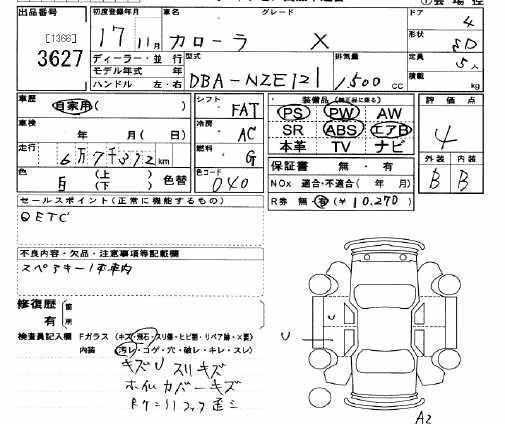 出品番号 初度登録年月 車名 グレード ドア 4
[1366] 17 11月 カローラ X 形状 SD
3627 ディーラー・並行 型式 排気量 定員 5人
モデル年式 年 DBA-NZE121 1,500 cc 積載
ハンドル 左・右 kg
車歴 自家用( ) シフト FAT 装備品 評価点
車検 年 月( ) 冷房 AC PS PW AW 4
走行 6万7千372km 燃料 G SR ABS エアB
本革 TV ナビ 外装 内装
色 白 (上) (下) 色替 色コード 040 保証書 無・有 B B
NOx 適合・不適合( 年 月)
R券 無 有 (¥ 10,270)
セールスポイント(正常に機能するもの)
○ETC
不良内容・欠品・注意事項等記載欄
スペアキー1車内
修復歴 箇
有 所
検査員記入欄 Fガラス (キズ・飛石・スリ傷・ヒビ割・リペア跡・X要)
内装 (汚レ・コゲ・穴・破レ・キレ・スレ)
キズU スリキズ
ホイルカバーキズ
U U
A2